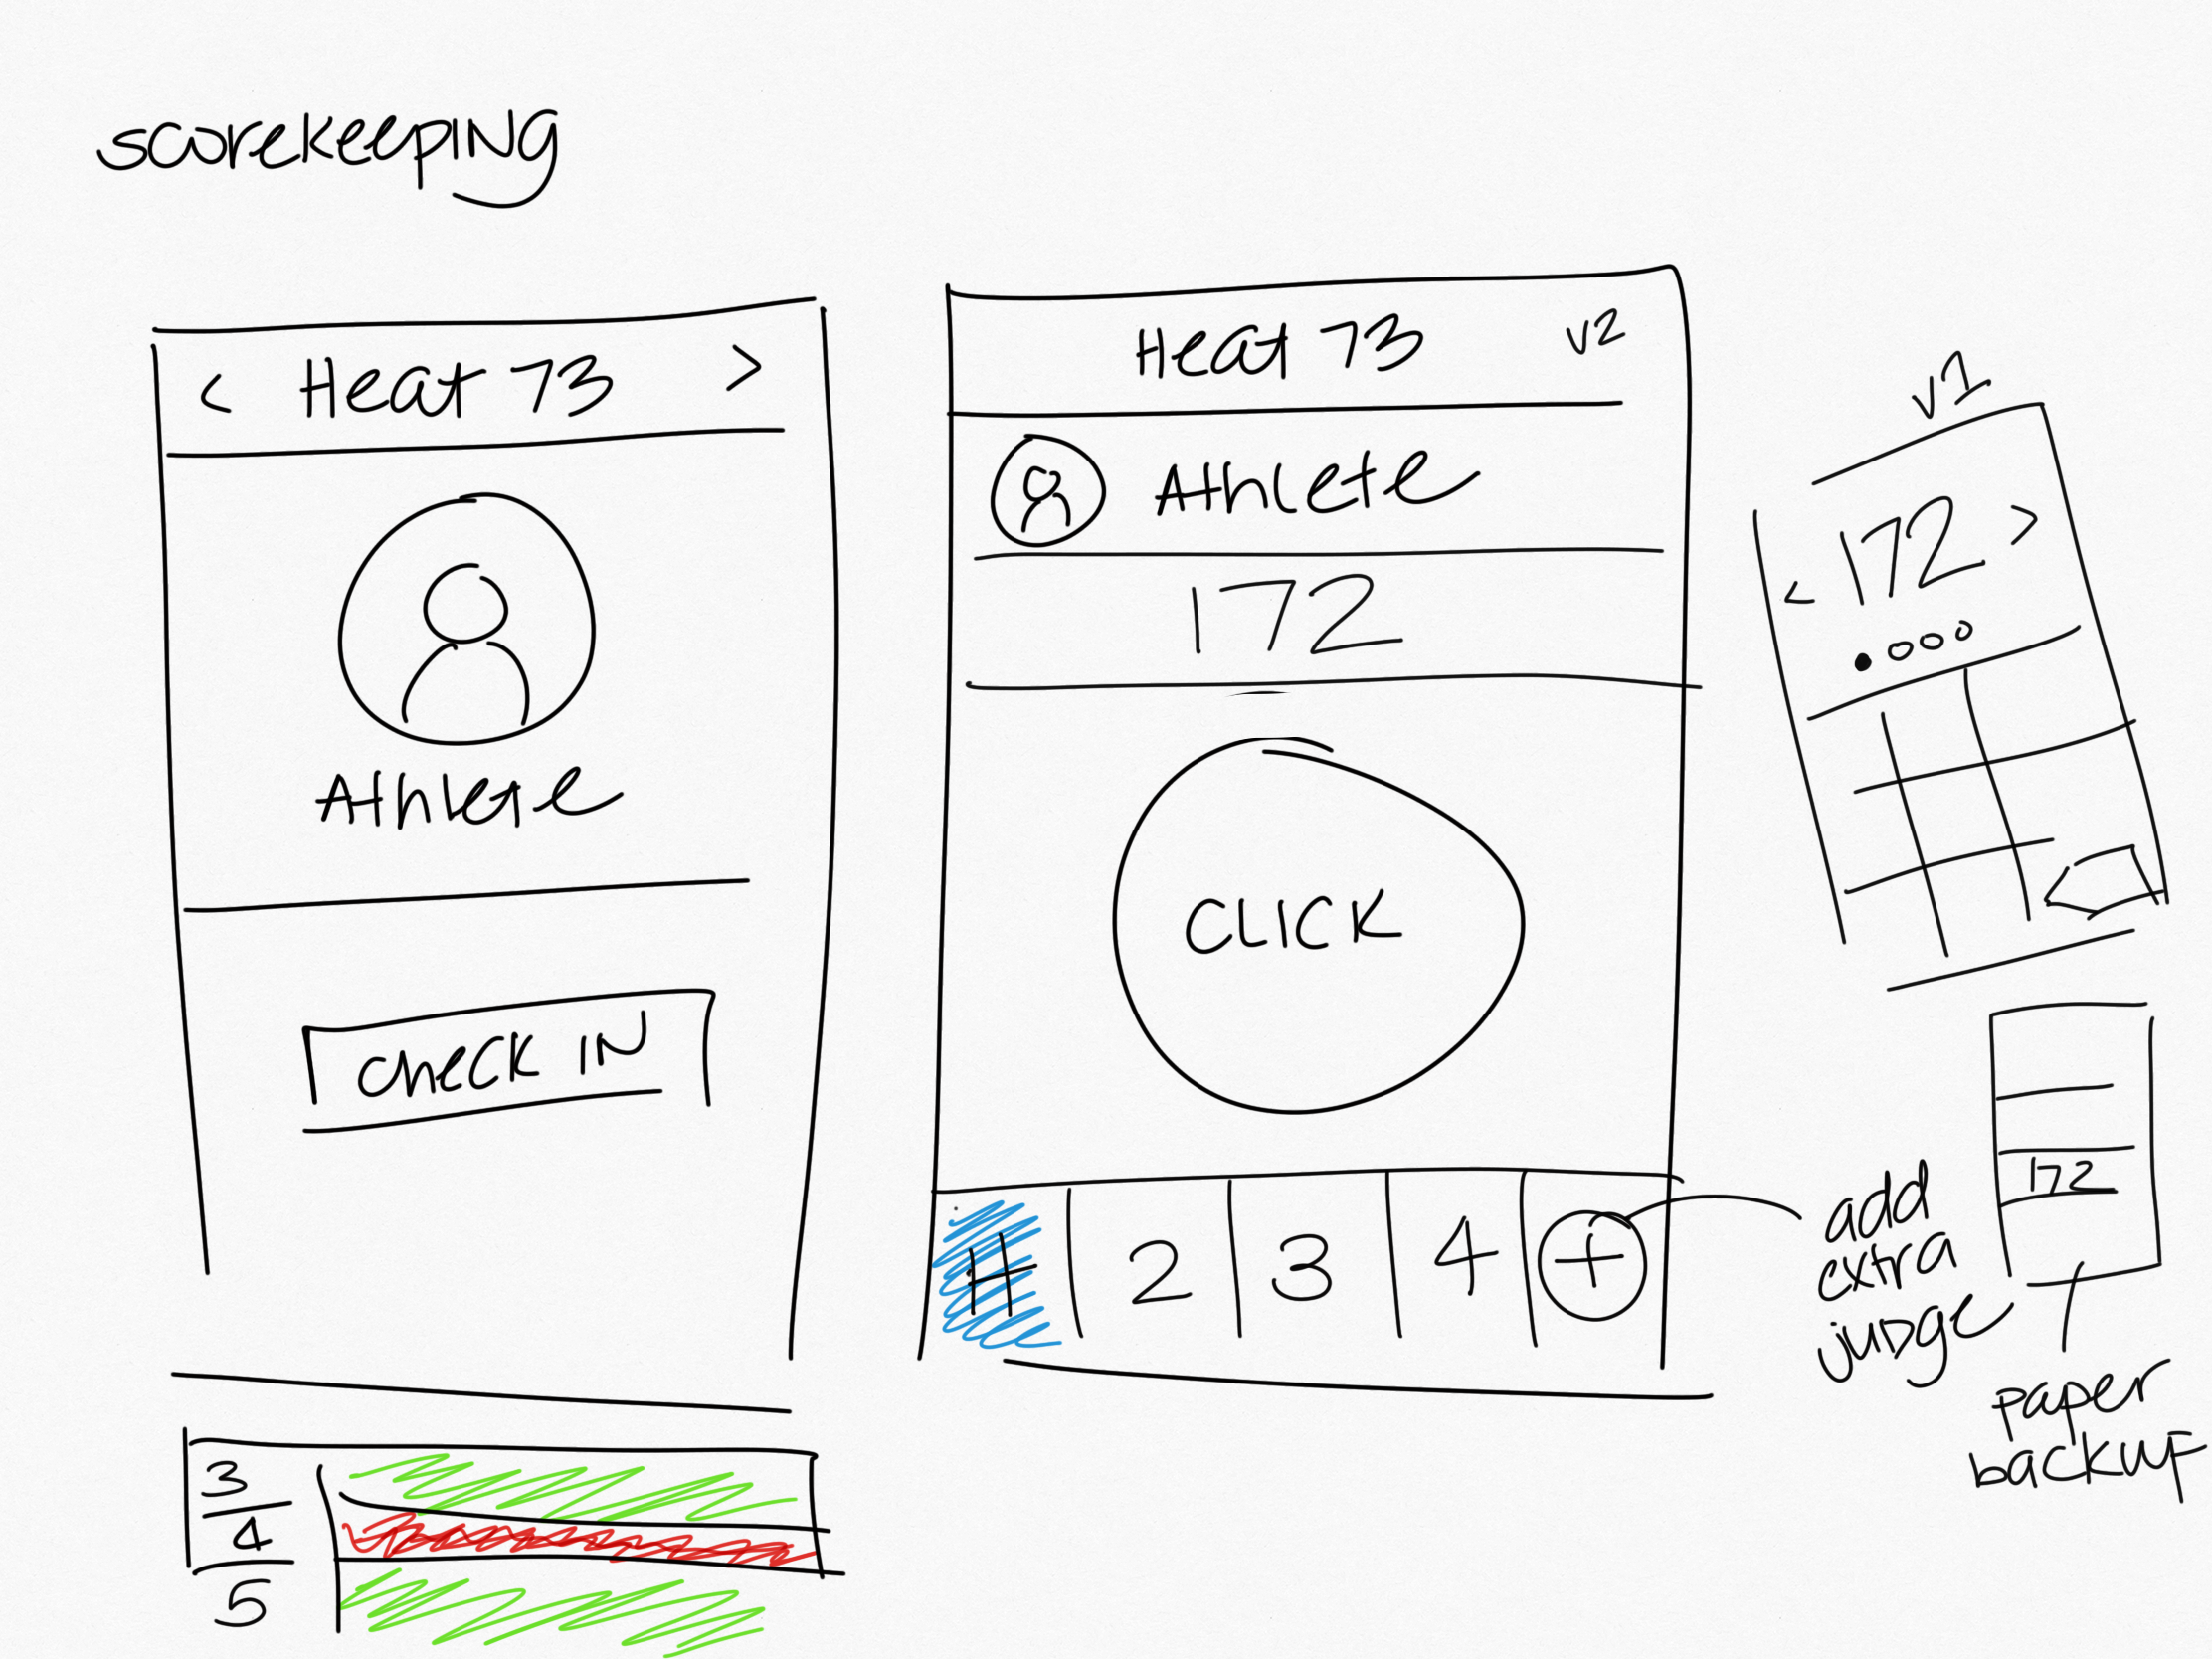 scorekeeping
< Heat 73 >
Athlete
Check IN
3
4
5
Heat 73 v2
Athlete
172
CLICK
H 2 3 4 +
v1
< 172 >
172
add
extra
judge
paper
backup